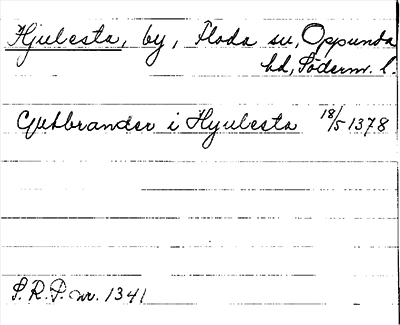 Hjulesta, by, Floda sn, Oppunda
hd, Söderm. l.
Gutbrander i Hyulesta 18/5 1378
S.R.P. nr. 1341